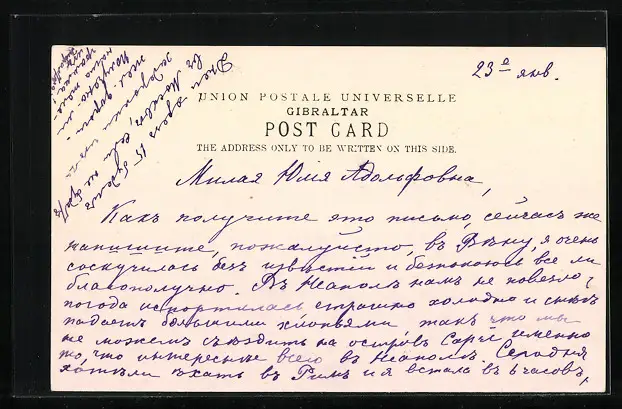 23е янв.
UNION POSTALE UNIVERSELLE
GIBRALTAR
POST CARD
THE ADDRESS ONLY TO BE WRITTEN ON THIS SIDE.
Милая Юлія Адольфовна,
Какъ получите это письмо, сейчасъ же
напишите, пожалуйста, въ Вѣну, я очень
соскучилась безъ извѣстій и безпокоюсь все ли
благополучно. Въ Неаполѣ намъ не повезло,
погода испортилась страшно холодно и снѣгъ
падаетъ большими хлопьями такъ что мы
не можемъ съѣздить на островъ Capri именно
то, что интереснѣе всего въ Неаполѣ. Сегодня
хотѣли ѣхать въ Римъ и я встала въ 6 часовъ,